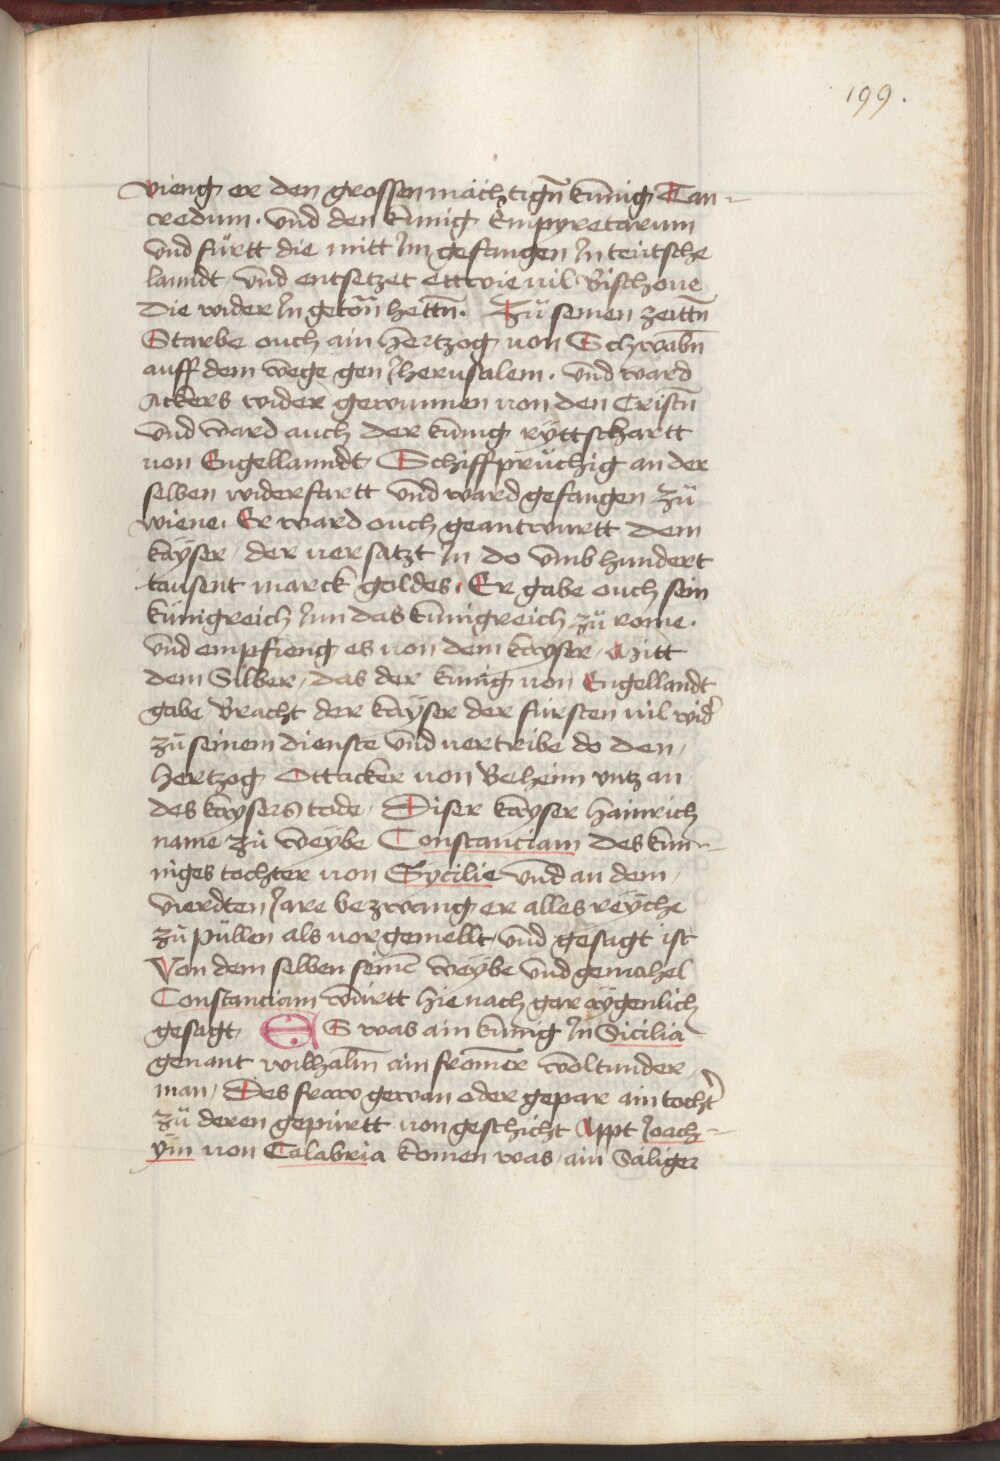 199.
vieng er den grossen mächtign̄ kunig Tan-
credum. vnd den kunig Empyretarum
vnd fürtt die mitt Im gefangen In teutsche
lanndt / vnd entsetzet ettwie vil Bischoue
die wider In geton̄ hettn̄. Zů seinen zeittn̄
Starbe ouch ain hertzog von Schwabn̄
auff dem wege gen Jherusalem. vnd ward
Ackers wider gewunnen von den Cristn̄
vnd ward auch der kunig ryttschartt
von Engellanndt Schiffprüchig an der
selben widerfartt vnd ward gefangen zů
wiene. Er ward ouch geantwurtt dem
kayser / der versatzt In do vmb hundert
tausent marck goldes. Er gabe ouch sein
künigreich Inn das kunigreich zů rome.
vnd empfieng es von dem kayser / Mitt
dem Silber / das der kunig von Engellandt
gabe / Bracht der kayser der fürsten vil wid'
zů seinem dienste vnd vertribe do den /
hertzog Ottacker von Beheim vntz an
des kaysers tode / Diser kayser hainrich
name zů weybe Constanciam des kun-
niges tochter von Sycilie vnd an dem /
vierdten Jare bezwang er alles reyche
zů püllen als vor gemellt vnd gesagt ist
Von dem selben seinē weybe vnd gemahel
Constanciam württ hie nach gar aygenlich
gesagt / ES was ain kunig In Sicilia
genant wilhalm̄ ain from̄er woltunder
man / Des fraw gewan oder gepar ain tocht'
zů deren gepurtt von geschicht Appt Joach-
ym von Calabria komen was / ain Säliger